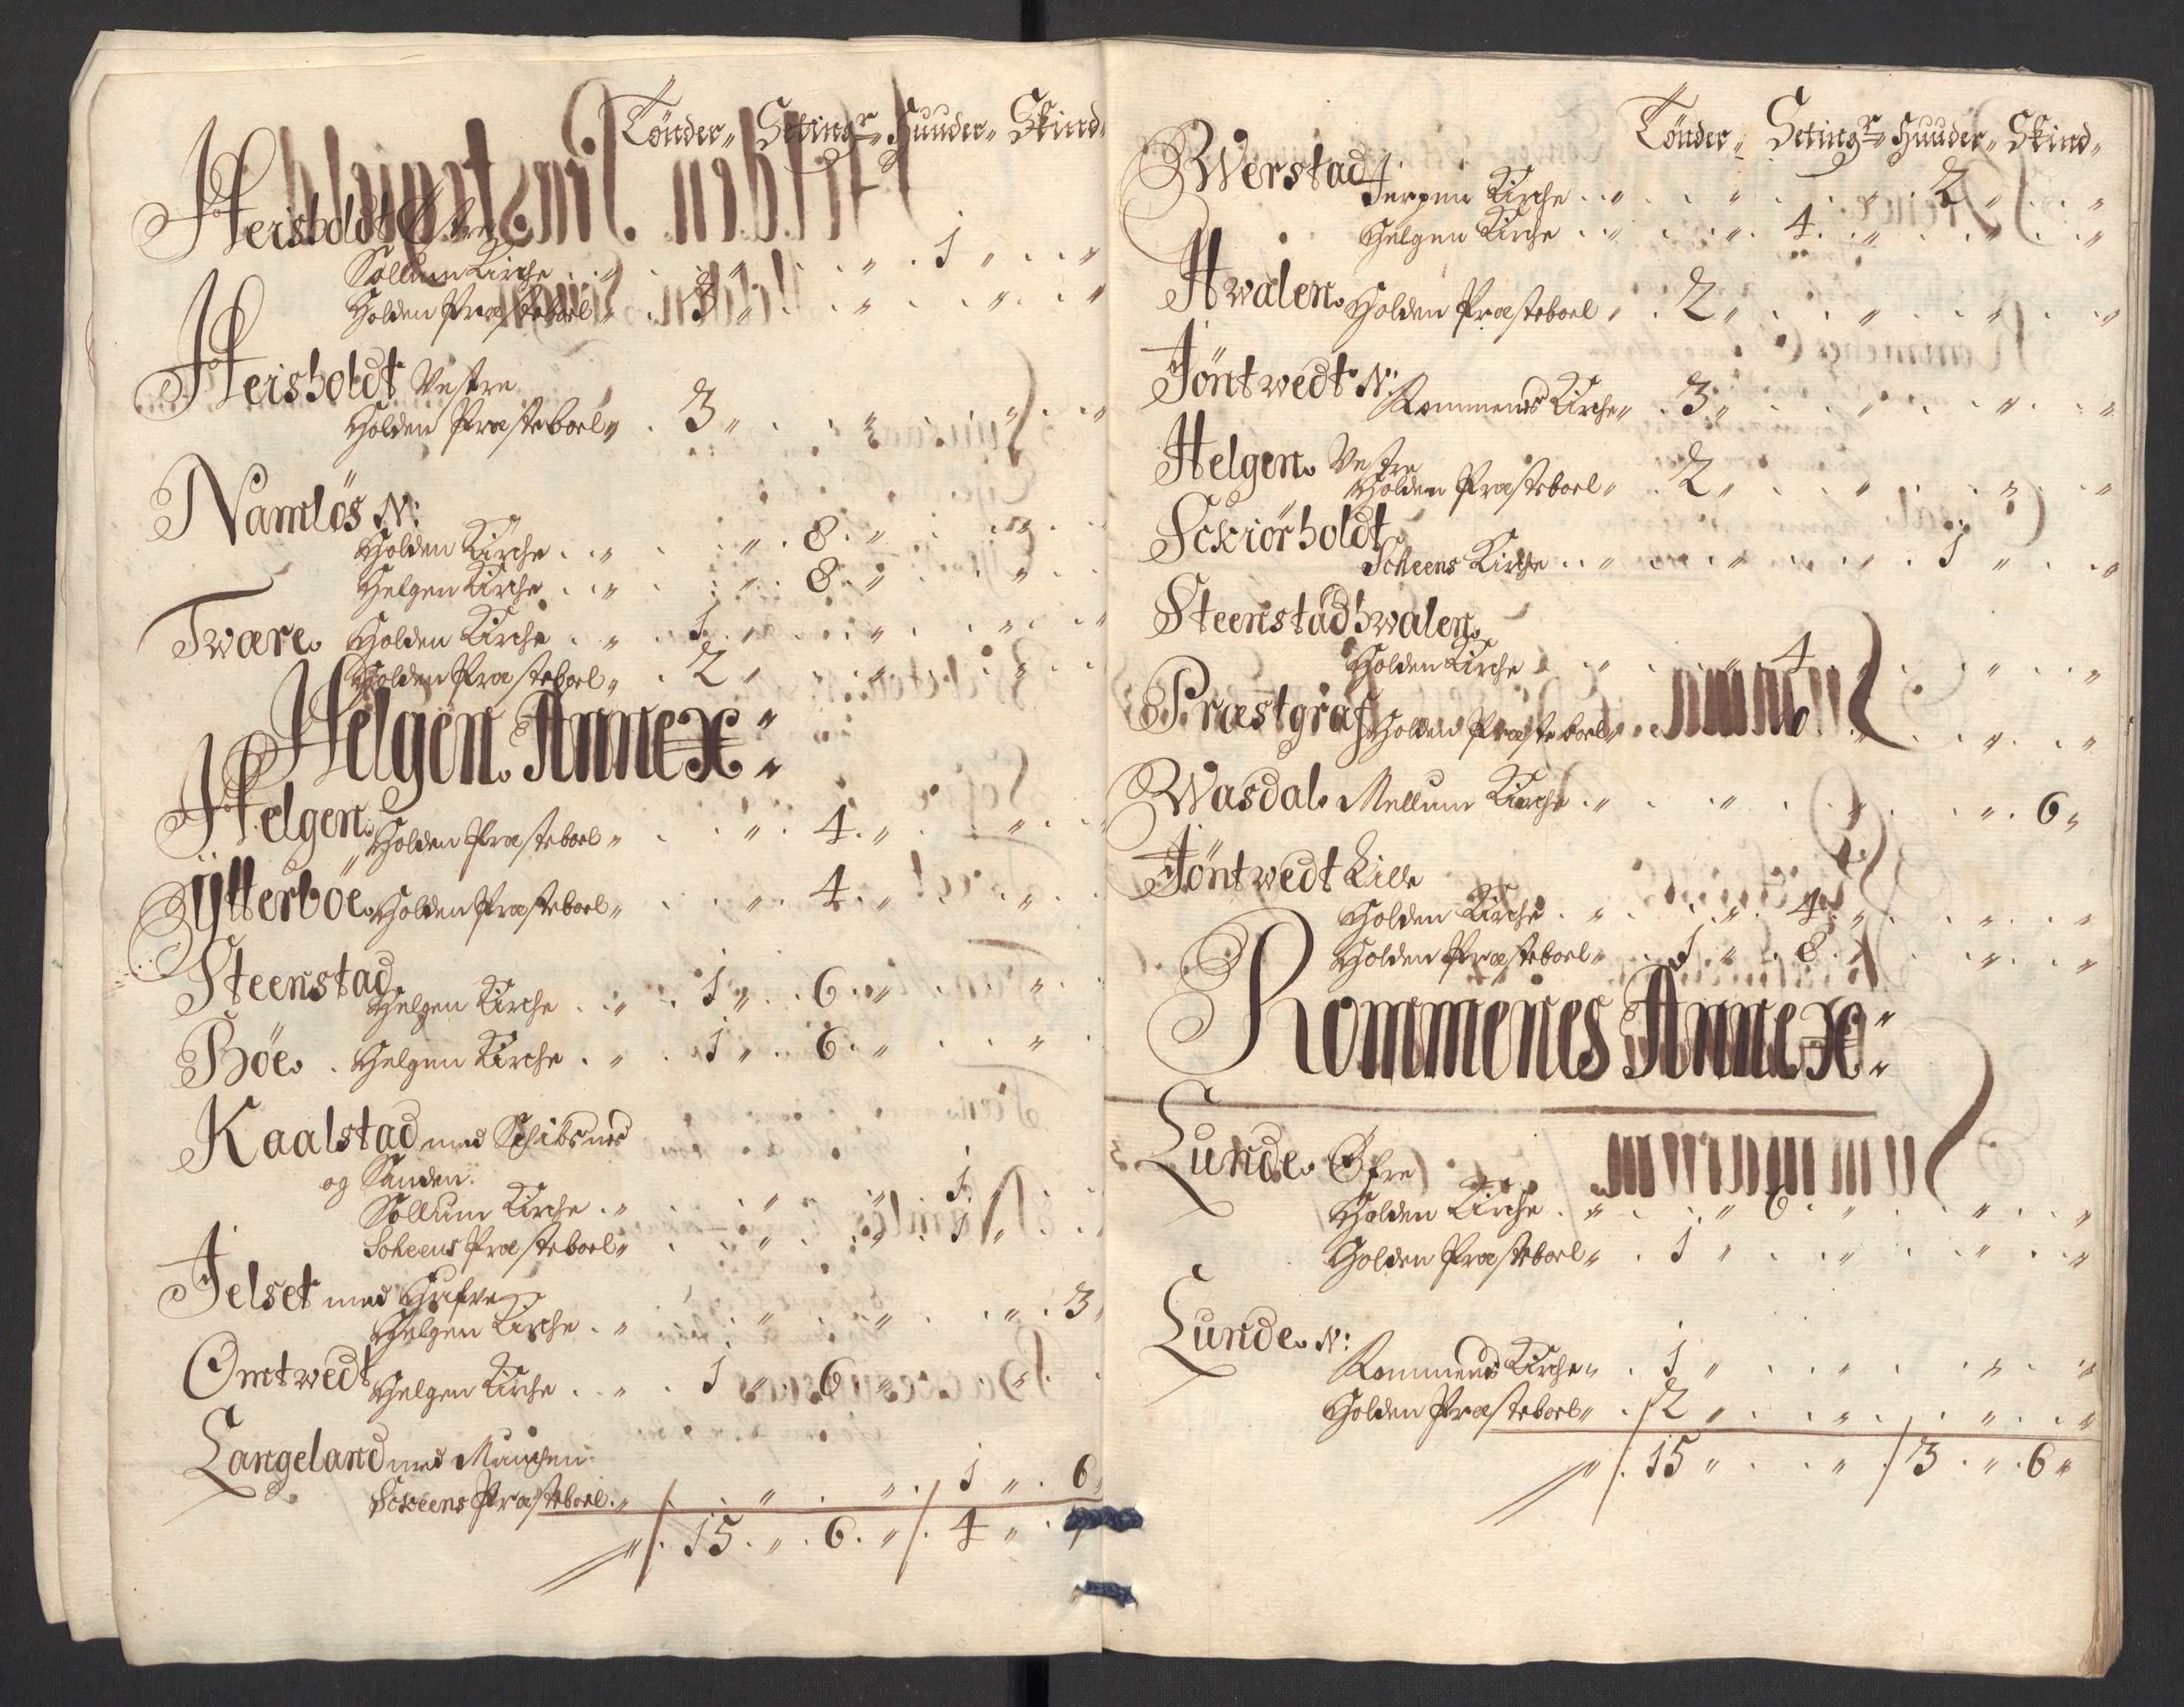 Tönder „ Setingr „ Huuder „ Skind „
Heisholdt Østre
Sollum Kirche . . „ . . „ . . „ . 1 „ . . „
Holden Præsteboel „ . 3 „ . . „ . . „ . . „
Heisholdt Vestre
Holden Præsteboel „ . 3 „ . . „ . . „ . . „
Namløs N:
Holden Kirche . . „ . . „ . 8 . „ . . „ . .
Helgen Kirche . . „ . . „ . 8 . „ . . „ . .
Tware. Holden Kirche . „ . 1 . „ . . „ . . „ . . „
Holden Præsteboel „ . 2 „ . . „ . . „ . .
Helgen Annex:
Helgen. Holden Præsteboel „ . . „ . 4 . „ . . „ . . „
Ÿtterböe. Holden Præsteboel „ . . „ . 4 . „ . . „ . .
Steenstad
Helgen Kirche . . „ . 1 „ . 6 . „ . . „ . .
Böe. . Helgen Kirche . „ . 1 „ . 6 . „ . . „ . .
Kaalstad med Schibsnes
og Sanden.
Sollum Kirche . „ . . „ . . „ . 1 . „ . .
Scheens Præsteboel „ . . „ . . „ . 1 „ . .
Jelset med
Helgen Kirche . „ . . „ . . „ . . „ . 3 „
Omtwedt
Helgen Kirche . . „ . 1 „ . 6 . „ . . „ . .
Langeland med
Scheens Præsteboel . „ . . „ . . „ . 1 „ . 6 „
„ / . 15 . „ . 6 . „ / . 4 „ .
Tönder „ Setingr „ Huuder „ Skind „
Werstad
Jerpen Kirche . . „ . . „ . . „ . 2 „ . . „
Helgen Kirche . . „ . . „ . 4 . „ . . „ . . „
Hwalen. Holden Præsteboel „ . 2 „ . . „ . . „ . . „
Jöntwedt N:
Rommenes Kirche „ . 3 „ . . „ . . „ . . „
Helgen. Vestre
Holden Præsteboel „ . 2 „ . . „ . . „ . . „
Sckiörholdt
Scheens Kirche . . „ . . „ . . „ . 1 „ . . „
Steenstadhwalen.
Holden Kirche . . „ . . „ . 4 . „ . . „ . . „
Præstgraf
Holden Præsteboel „ . . „ . 6 . „ . . „ . . „
Wasdal. Mellum Kirche . „ . . „ . . „ . . „ . 6 „
Jöntwedt Lille
Holden Kirche . „ . . „ . 4 . „ . . „ . . „
Holden Præsteboel „ . 1 „ . 8 . „ . . „ . . „
Rommenes Annex:
Lunde. Øfre
Holden Kirche . „ . . „ . 6 . „ . . „ . . „
Holden Præsteboel „ . 1 „ . . „ . . „ . . „
Lunde. N:
Rommenes Kirche „ . 1 „ . . „ . . „ . . „
Holden Præsteboel „ . 2 „ . . „ . . „ . . „
„ / . 15 „ . . „ . / 3 . „ . 6 „